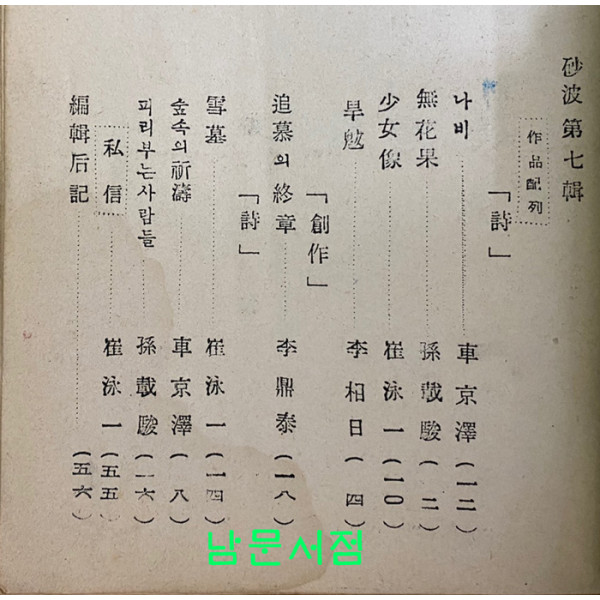 砂波 第七輯
作品配列
「詩」
나비 車京澤 (一二)
無花果 孫載駿 (二)
少女像 崔泳一 (一〇)
旱魃 李相日 (四)
「創作」
追慕의 終章 李鼎泰 (一八)
「詩」
雪墓 崔泳一 (一四)
숲속의 祈濤 車京澤 (八)
피리부는사람들 孫載駿 (一六)
私信 崔泳一 (五五)
編輯后記 (五六)
남문서점